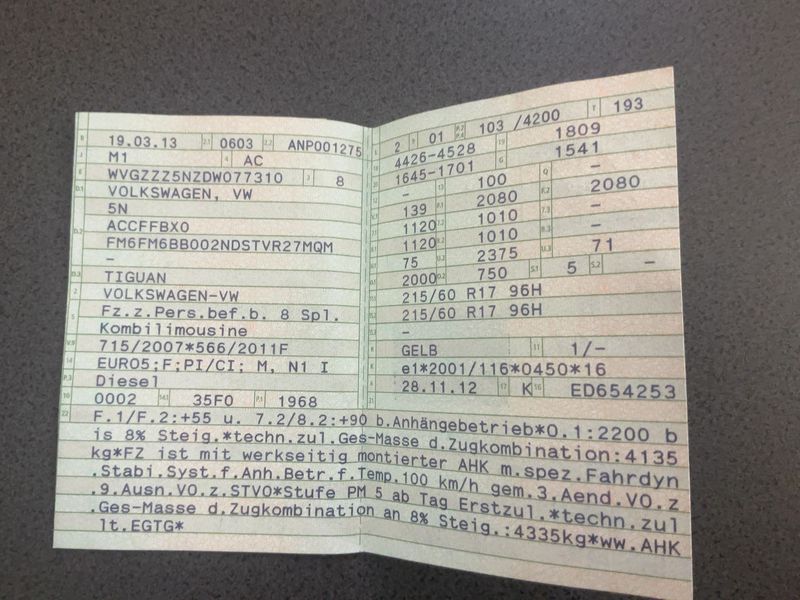 B 19.03.13 2.1 0603 2.2 ANP001275
J M1 4 AC
E WVGZZZ5NZDW077310 3 8
D.1 VOLKSWAGEN, VW
5N
D.2 ACCFFBX0
FM6FM6BB002NDSTVR27MQM
–
D.3 TIGUAN
2 VOLKSWAGEN-VW
5 Fz.z.Pers.bef.b. 8 Spl.
Kombilimousine
V.9 715/2007*566/2011F
14 EURO5;F;PI/CI; M, N1 I
P.3 Diesel
10 0002 14.1 35F0 P.1 1968
L 2 9 01 P.2 P.4 103 /4200 T 193
18 4426-4528 19 1809
20 1645-1701 G 1541
12 – 13 100 Q –
139 2080 F.2 2080
1120 1010 7.3 –
1120 1010 8.3 –
75 2375 U.3 71
2000 O.2 750 S.1 5 S.2 –
215/60 R17 96H
215/60 R17 96H
–
R GELB 11 1/–
K e1*2001/116*0450*16
6 28.11.12 17 K 16 ED654253
22 F.1/F.2:+55 u. 7.2/8.2:+90 b.Anhängebetrieb*O.1:2200 b
is 8% Steig.*techn.zul.Ges-Masse d.Zugkombination:4135
kg*FZ ist mit werkseitig montierter AHK m.spez.Fahrdyn
.Stabi.Syst.f.Anh.Betr.f.Temp.100 km/h gem.3.Aend.VO.z
.9.Ausn.VO.z.STVO*Stufe PM 5 ab Tag Erstzul.*techn.zul
.Ges-Masse d.Zugkombination an 8% Steig.:4335kg*ww.AHK
lt.EGTG*